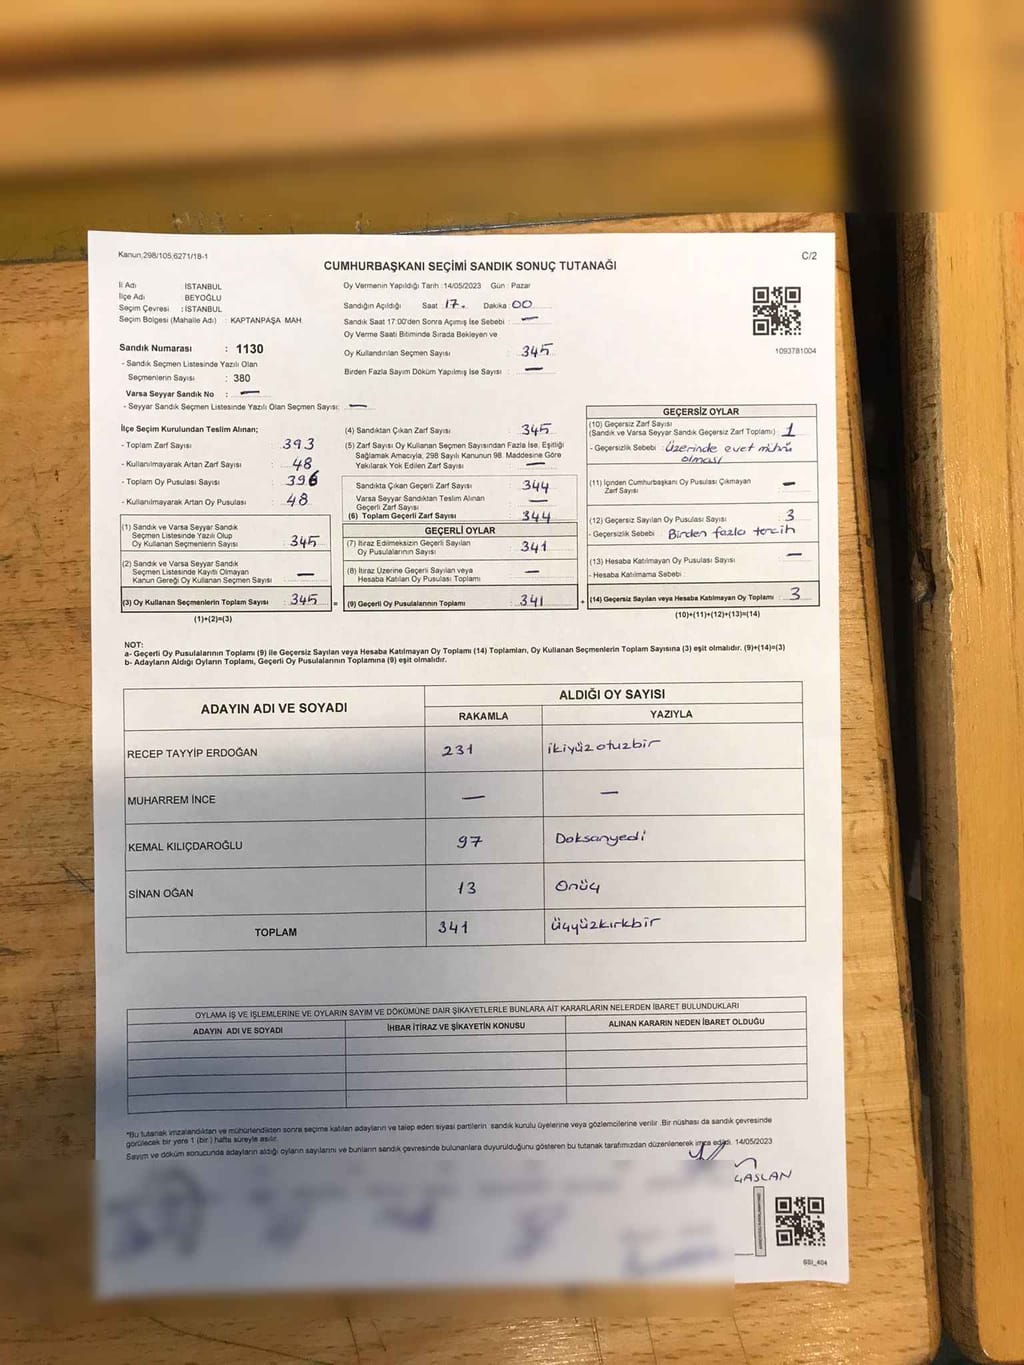 Kanun;298/105,6271/18-1
C/2
CUMHURBAŞKANI SEÇİMİ SANDIK SONUÇ TUTANAĞI
İl Adı : İSTANBUL
İlçe Adı : BEYOĞLU
Seçim Çevresi : İSTANBUL
Seçim Bölgesi (Mahalle Adı) : KAPTANPAŞA MAH.
Sandık Numarası : 1130
- Sandık Seçmen Listesinde Yazılı Olan
Seçmenlerin Sayısı : 380
Varsa Seyyar Sandık No : —
- Seyyar Sandık Seçmen Listesinde Yazılı Olan Seçmen Sayısı: —
Oy Vermenin Yapıldığı Tarih :14/05/2023 Gün : Pazar
Sandığın Açıldığı Saat 17. Dakika 00
Sandık Saat 17:00'den Sonra Açımış İse Sebebi : —
Oy Verme Saati Bitiminde Sırada Bekleyen ve
Oy Kullandırılan Seçmen Sayısı : 345
Birden Fazla Sayım Döküm Yapılmış İse Sayısı : —
1093781004
İlçe Seçim Kurulundan Teslim Alınan;
- Toplam Zarf Sayısı : 393
- Kullanılmayarak Artan Zarf Sayısı : 48
- Toplam Oy Pusulası Sayısı : 396
- Kullanılmayarak Artan Oy Pusulası : 48
(1) Sandık ve Varsa Seyyar Sandık
Seçmen Listesinde Yazılı Olup
Oy Kullanan Seçmenlerin Sayısı : 345
(2) Sandık ve Varsa Seyyar Sandık
Seçmen Listesinde Kayıtlı Olmayan
Kanun Gereği Oy Kullanan Seçmen Sayısı : —
(3) Oy Kullanan Seçmenlerin Toplam Sayısı : 345 =
(1)+(2)=(3)
(4) Sandıktan Çıkan Zarf Sayısı : 345
(5) Zarf Sayısı Oy Kullanan Seçmen Sayısından Fazla İse, Eşitliği
Sağlamak Amacıyla, 298 Sayılı Kanunun 98. Maddesine Göre
Yakılarak Yok Edilen Zarf Sayısı : —
Sandıkta Çıkan Geçerli Zarf Sayısı : 344
Varsa Seyyar Sandıktan Teslim Alınan
Geçerli Zarf Sayısı : —
(6) Toplam Geçerli Zarf Sayısı : 344
GEÇERLİ OYLAR
(7) İtiraz Edilmeksizin Geçerli Sayılan
Oy Pusulalarının Sayısı : 341
(8) İtiraz Üzerine Geçerli Sayılan veya
Hesaba Katılan Oy Pusulası Toplamı : —
(9) Geçerli Oy Pusulalarının Toplamı : 341 +
GEÇERSİZ OYLAR
(10) Geçersiz Zarf Sayısı
(Sandık ve Varsa Seyyar Sandık Geçersiz Zarf Toplamı) : 1
- Geçersizlik Sebebi : Üzerinde evet mührü
olması
(11) İçinden Cumhurbaşkanı Oy Pusulası Çıkmayan
Zarf Sayısı : —
(12) Geçersiz Sayılan Oy Pusulası Sayısı : 3
- Geçersizlik Sebebi : Birden fazla tercih
(13) Hesaba Katılmayan Oy Pusulası Sayısı : —
- Hesaba Katılmama Sebebi :
(14) Geçersiz Sayılan veya Hesaba Katılmayan Oy Toplamı : 3
(10)+(11)+(12)+(13)=(14)
NOT:
a- Geçerli Oy Pusulalarının Toplamı (9) ile Geçersiz Sayılan veya Hesaba Katılmayan Oy Toplamı (14) Toplamları, Oy Kullanan Seçmenlerin Toplam Sayısına (3) eşit olmalıdır. (9)+(14)=(3)
b- Adayların Aldığı Oyların Toplamı, Geçerli Oy Pusulalarının Toplamına (9) eşit olmalıdır.
ADAYIN ADI VE SOYADI
ALDIĞI OY SAYISI
RAKAMLA YAZIYLA
RECEP TAYYİP ERDOĞAN 231 ikiyüzotuzbir
MUHARREM İNCE — —
KEMAL KILIÇDAROĞLU 97 Doksanyedi
SİNAN OĞAN 13 Onüç
TOPLAM 341 üçyüzkırkbir
OYLAMA İŞ VE İŞLEMLERİNE VE OYLARIN SAYIM VE DÖKÜMÜNE DAİR ŞİKAYETLERLE BUNLARA AİT KARARLARIN NELERDEN İBARET BULUNDUKLARI
ADAYIN ADI VE SOYADI İHBAR İTİRAZ VE ŞİKAYETİN KONUSU ALINAN KARARIN NEDEN İBARET OLDUĞU
*Bu tutanak imzalandıktan ve mühürlendikten sonra seçime katılan adayların ve talep eden siyasi partilerin sandık kurulu üyelerine veya gözlemcilerine verilir .Bir nüshası da sandık çevresinde
görülecek bir yere 1 (bir ) hafta süreyle asılır.
Sayım ve döküm sonucunda adayların aldığı oyların sayılarını ve bunların sandık çevresinde bulunanlara duyurulduğunu gösteren bu tutanak tarafımızdan düzenlenerek imza edildi. 14/05/2023
ASLAN
GSI_404